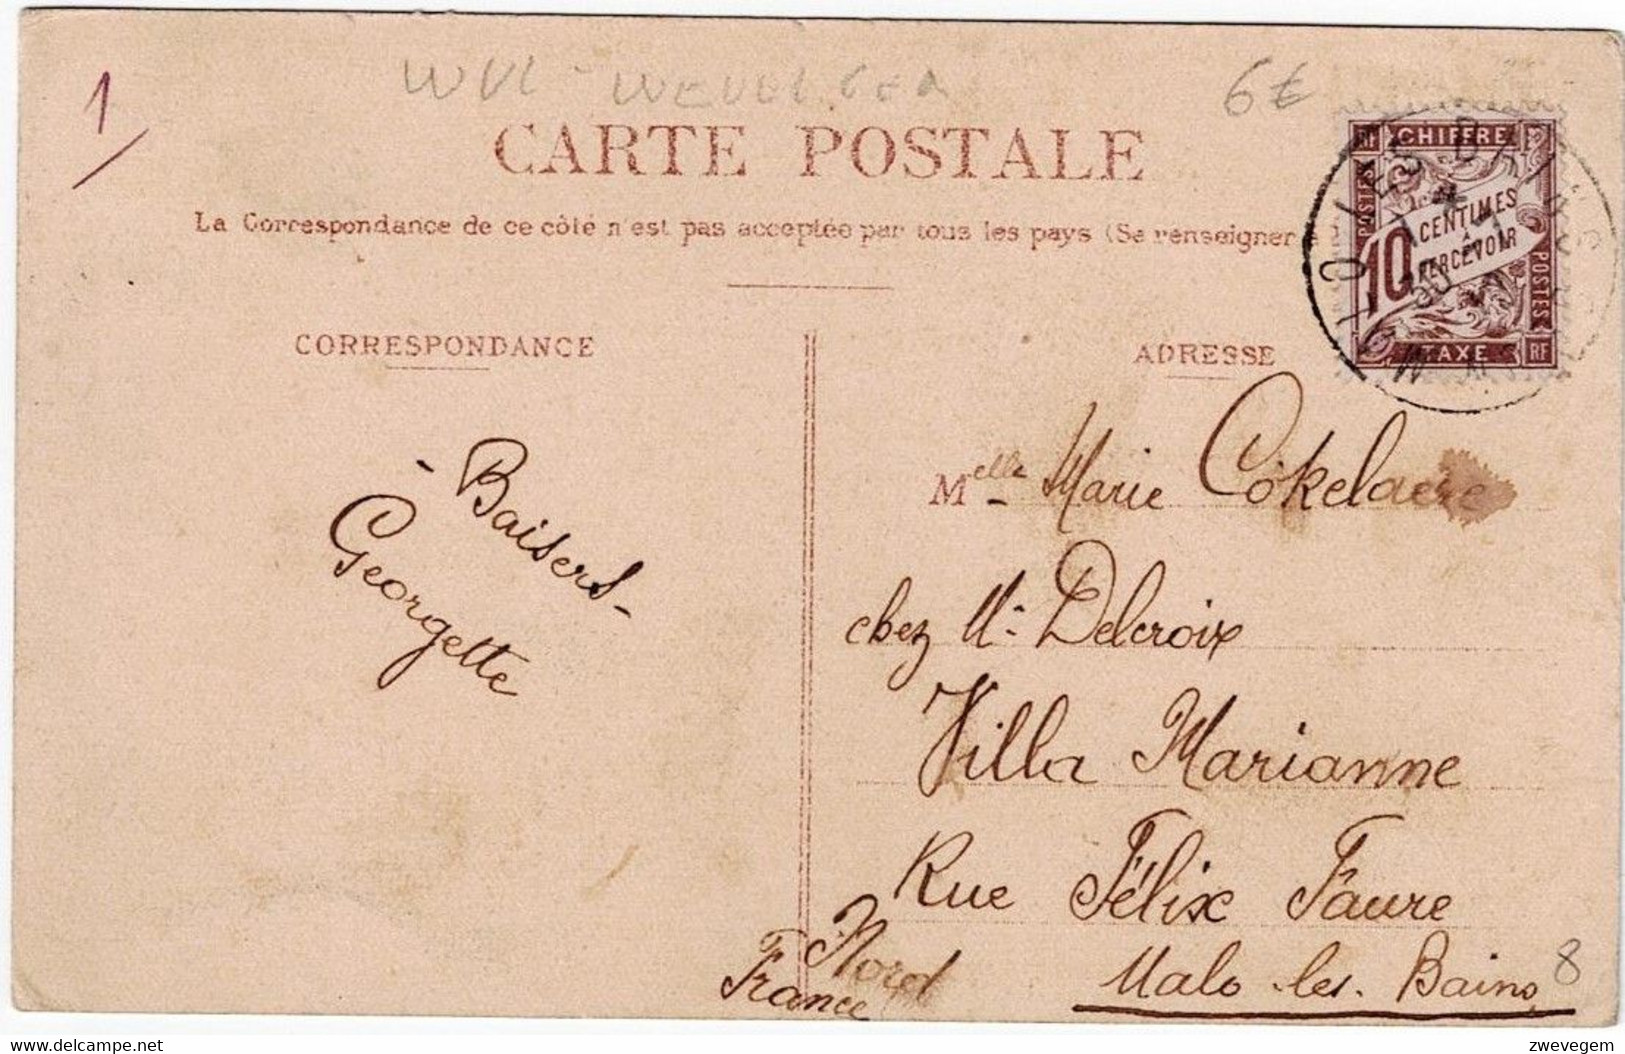 1
6€
CARTE POSTALE
La Correspondance de ce côté n'est pas acceptée par tous les pays (Se renseigner
CHIFFRE
POSTES
10 CENTIMES
À
PERCEVOIR
POSTES
TAXE
RF
CORRESPONDANCE
- Baisers -
Georgette
ADRESSE
Melle Marie Cokelaere
chez Mr Delcroix
Villa Marianne
Rue Félix Faure
Malo-les-Bains
Nord
France
8
delcampe.net
zwevegem